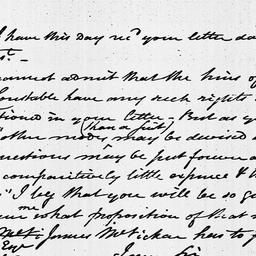 I have this day recd your letter da
st. —
cannot admit that the heirs of
Constable have any such rights
tioned in your letter — But as y
(than a suit)
other modes may be devised
questions may be put forward
comparatively little expence &
"I beg that you will be so go
me what proposition
James McVickar has to
Esqr